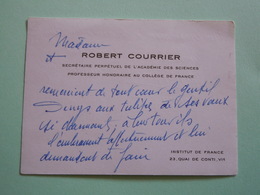 Madame
et ROBERT COURRIER
SECRÉTAIRE PERPÉTUEL DE L'ACADÉMIE DES SCIENCES
PROFESSEUR HONORAIRE AU COLLÈGE DE FRANCE
remercient de tout cœur le gentil
aux tulipes de ses vœux
si charmants; à leur tour ils
l'embrassent affectueusement et lui
demandent de
INSTITUT DE FRANCE
23, QUAI DE CONTI, VIe